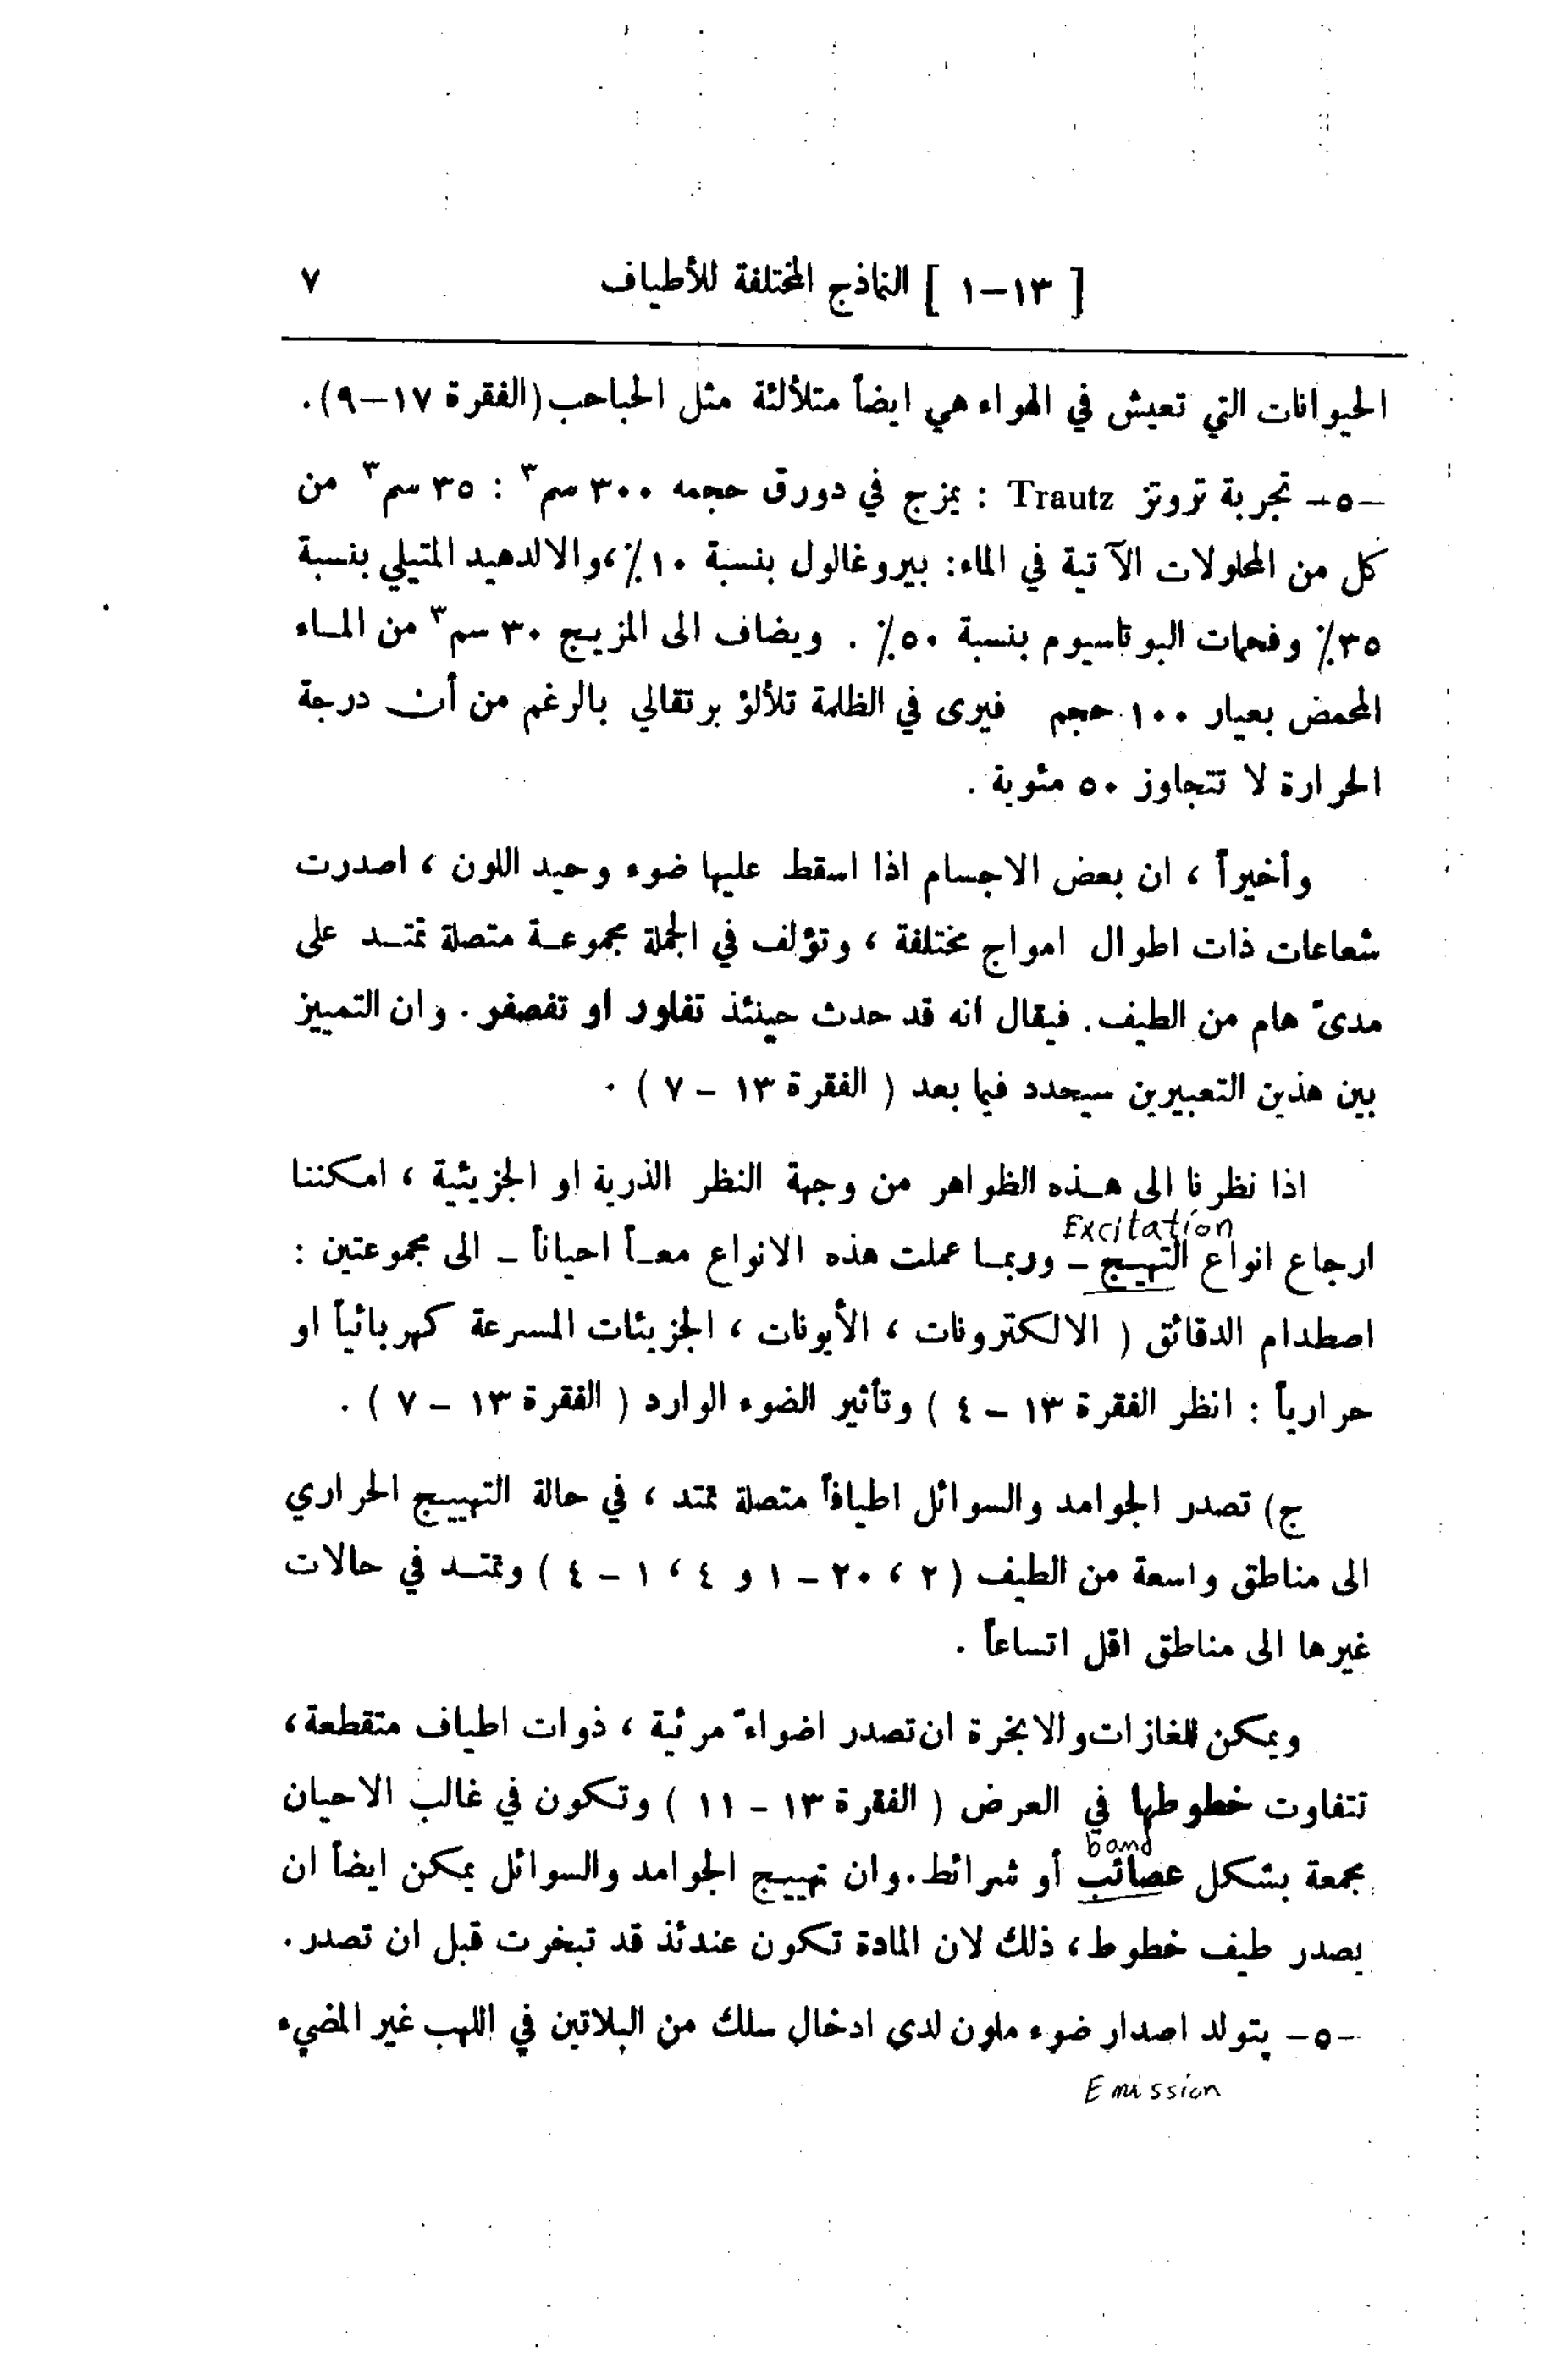 [ ١٣-١ ] النماذج المختلفة للأطياف ٧
الحيوانات التي تعيش في الهواء هي ايضاً متلألئة مثل الحباحب (الفقرة ١٧-٩).
-٥- تجربة تروتز Trautz : يمزج في دورق حجمه ٣٠٠ سم٣ : ٣٥ سم٣ من
كل من المحلولات الآتية في الماء: بيروغالول بنسبة ١٠٪،والالدهيد المتيلي بنسبة
٣٥٪ وفحمات البوتاسيوم بنسبة ٥٠٪ . ويضاف الى المزيج ٣٠ سم٣ من المــاء
المحمض بعيار ١٠٠ حجم فيرى في الظلمة تلألؤ برتقالي بالرغم من أن درجة
الحرارة لا تتجاوز ٥٠ مئوية .
وأخيراً ، ان بعض الاجسام اذا اسقط عليها ضوء وحيد اللون ، اصدرت
شعاعات ذات اطوال امواج مختلفة ، وتؤلف في الجملة مجموعـة متصلة تمتـد على
مدىً هام من الطيف. فيقال انه قد حدث حينئذ تفلور او تفصفر . وان التمييز
بين هذين التعبيرين سيحدد فيما بعد ( الفقرة ١٣ - ٧ ) .
اذا نظرنا الى هـذه الظواهر من وجهة النظر الذرية او الجزيئية ، امكننا
Excitation
ارجاع انواع التهييج - وربمـا عملت هذه الانواع معـاً احياناً - الى مجموعتين :
اصطدام الدقائق ( الالكترونات ، الأيونات ، الجزيئات المسرعة كهربائياً او
حرارياً : انظر الفقرة ١٣ - ٤ ) وتأثير الضوء الوارد ( الفقرة ١٣ - ٧ ) .
ج) تصدر الجوامد والسوائل اطيافاً متصلة تمتد ، في حالة التهييج الحراري
الى مناطق واسعة من الطيف ( ٢ ، ٢٠ - ١ و ٤ ، ١ - ٤ ) وتمتـد في حالات
غيرها الى مناطق اقل اتساعاً .
ويمكن للغازات والابخرة ان تصدر اضواءً مرئية ، ذوات اطياف متقطعة،
تتفاوت خطوطها في العرض ( الفقرة ١٣ - ١١ ) وتكون في غالب الاحيان
band
مجمعة بشكل عصائب أو شرائط.وان تهييج الجوامد والسوائل يمكن ايضاً ان
يصدر طيف خطوط، ذلك لان المادة تكون عندئذ قد تبخرت قبل ان تصدر.
-٥- يتولد اصدار ضوء ملون لدى ادخال سلك من البلاتين في اللهب غير المضيء
Emission